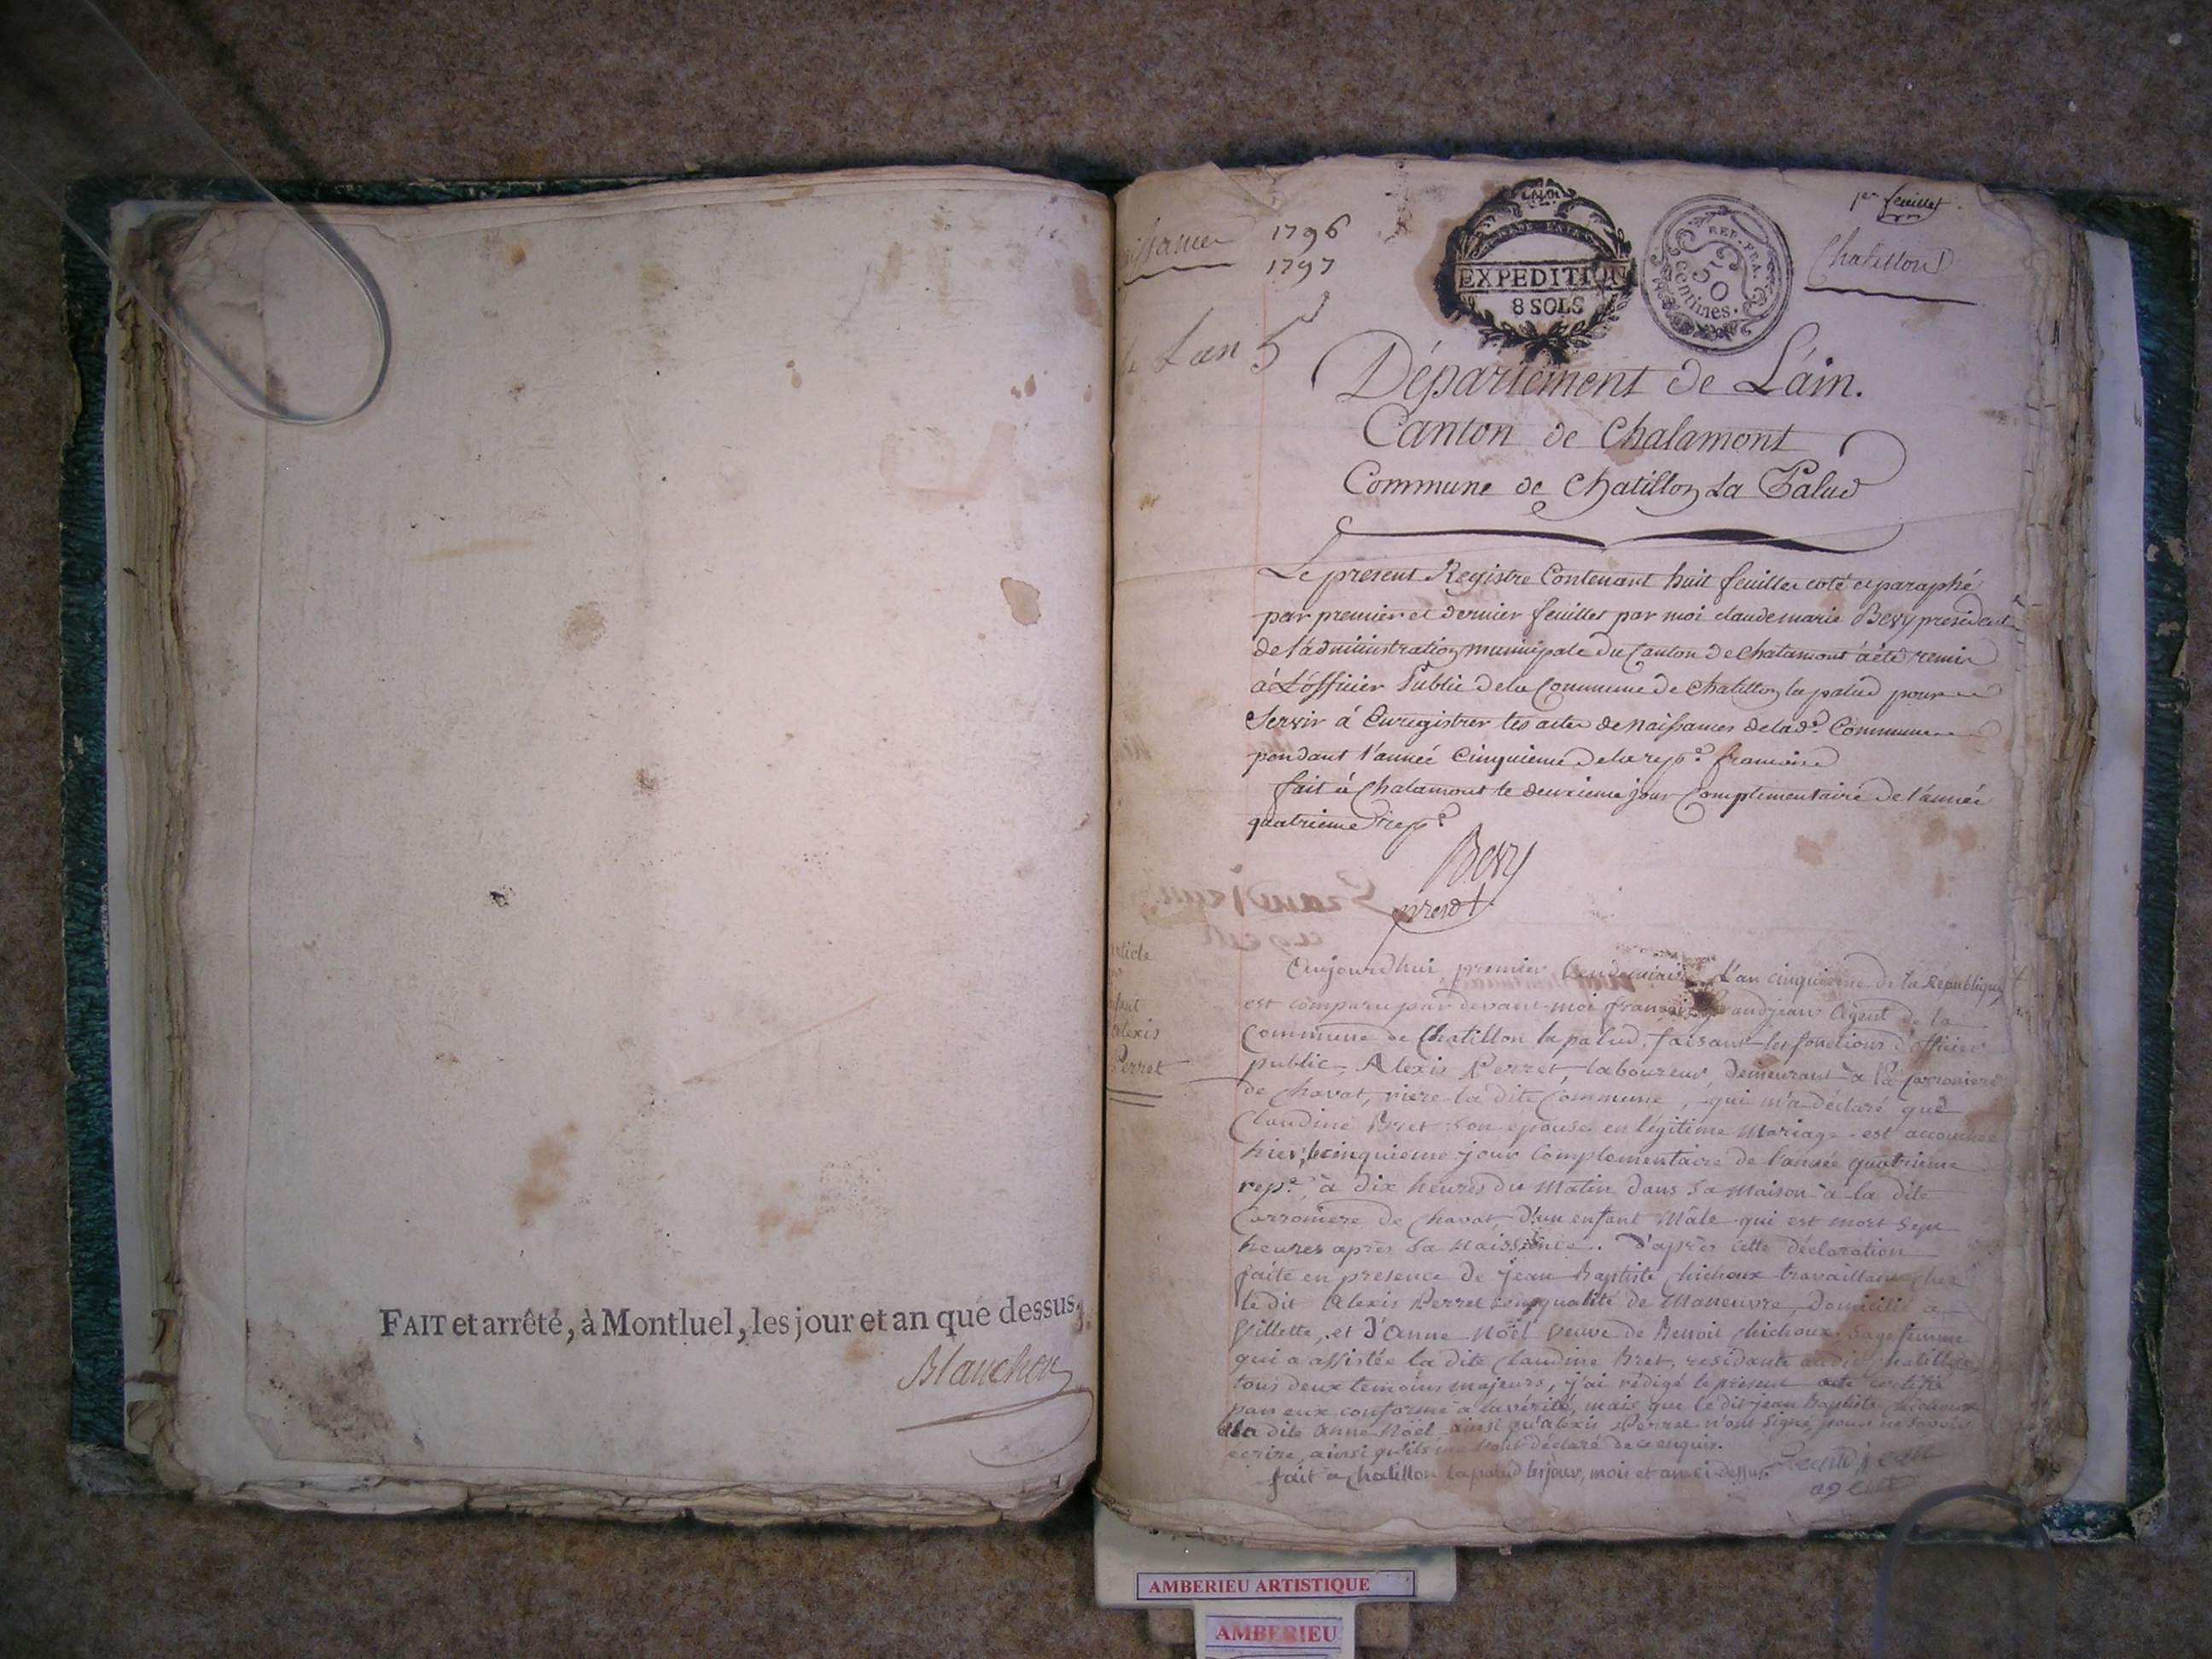 FAIT et arrêté, à Montluel, les jour et an que dessus.
Blanchon
1796
1797
Lan 5
LA LOI
EXPEDITION
8 SOLS
REP. FRA.
50
Centimes.
1er feuillet
Chatillon
Département de L'ain.
Canton de Chalamont
Commune de Chatillon La Palud
Le present Registre Contenant huit feuillets coté et paraphé
par premier et dernier feuillet par moi claude marie Bevy president
de l'administration municipale du Canton de chalamont a été remis
à L'officier Public de la Commune de chatillon la palud pour
Servir à Enregistrer les actes de naissances de lade. Commune
pendant l'année Cinquieme de la repe. francaise
fait à Chalamont le deuxieme jour Complementaire de l'année
quatrieme repe
Bevy
presdt
article
enfant
alexis
Perret
Aujourdhui premier Vendemiaire L'an cinquieme de la Republique
est comparu par devant moi françois Grandjean Agent de la
Commune de Chatillon la palud, faisant les fonctions d'officier
public, Alexis Perret, laboureur, demeurant à la Carroniere
de Chavat, riere la dite Commune, qui m'a déclaré que
Claudine Bret son épouse en légitime Mariage est accouchée
hier, le cinquieme jour Complementaire de l'année quatrieme
repe. à dix heures du Matin dans sa Maison à la dite
Carroniere de Chavat, d'un enfant Mâle qui est mort sept
heures après sa Naissance. D'après cette déclaration
faite en presence de jean Baptiste Chichoux travaillant chez
le dit Alexis Perret en qualité de Maneuvre, domicilié a
Villette, et d'Anne Noël veuve de Benoit Chichoux, sage femme
qui a assistée la dite Claudine Bret, residante audit Chatillon
tous deux temoins majeurs, j'ai rédigé le présent acte certifié
par eux conforme à la vérité, mais que le dit jean Baptiste Chichoux
et la dite Anne Noël ainsi qu'alexis Perret n'ont signé, pour ne savoir
écrire, ainsi qu'ils m'ont déclaré de ce enquis.
fait à Chatillon la palud les jour, mois et an ci dessus. Grandjean
agent
AMBERIEU ARTISTIQUE
AMBERIEU